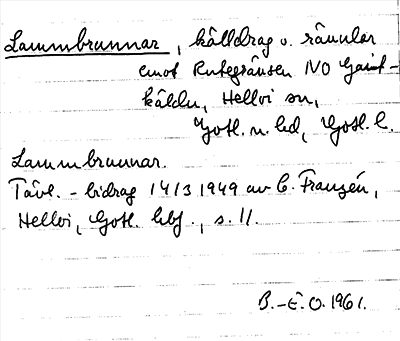 Lammbrunnar, källdrag o. rännlar
emot Rutegränsen NO Gaint-
källdu, Hellvi sn,
Gotl. n. hd, Gotl. l.
Lammbrunnar.
Tävl.-bidrag 14/3 1949 av C. Franzén,
Hellvi, Gotl. hbf., s. 11.
B.-E. O. 1961.